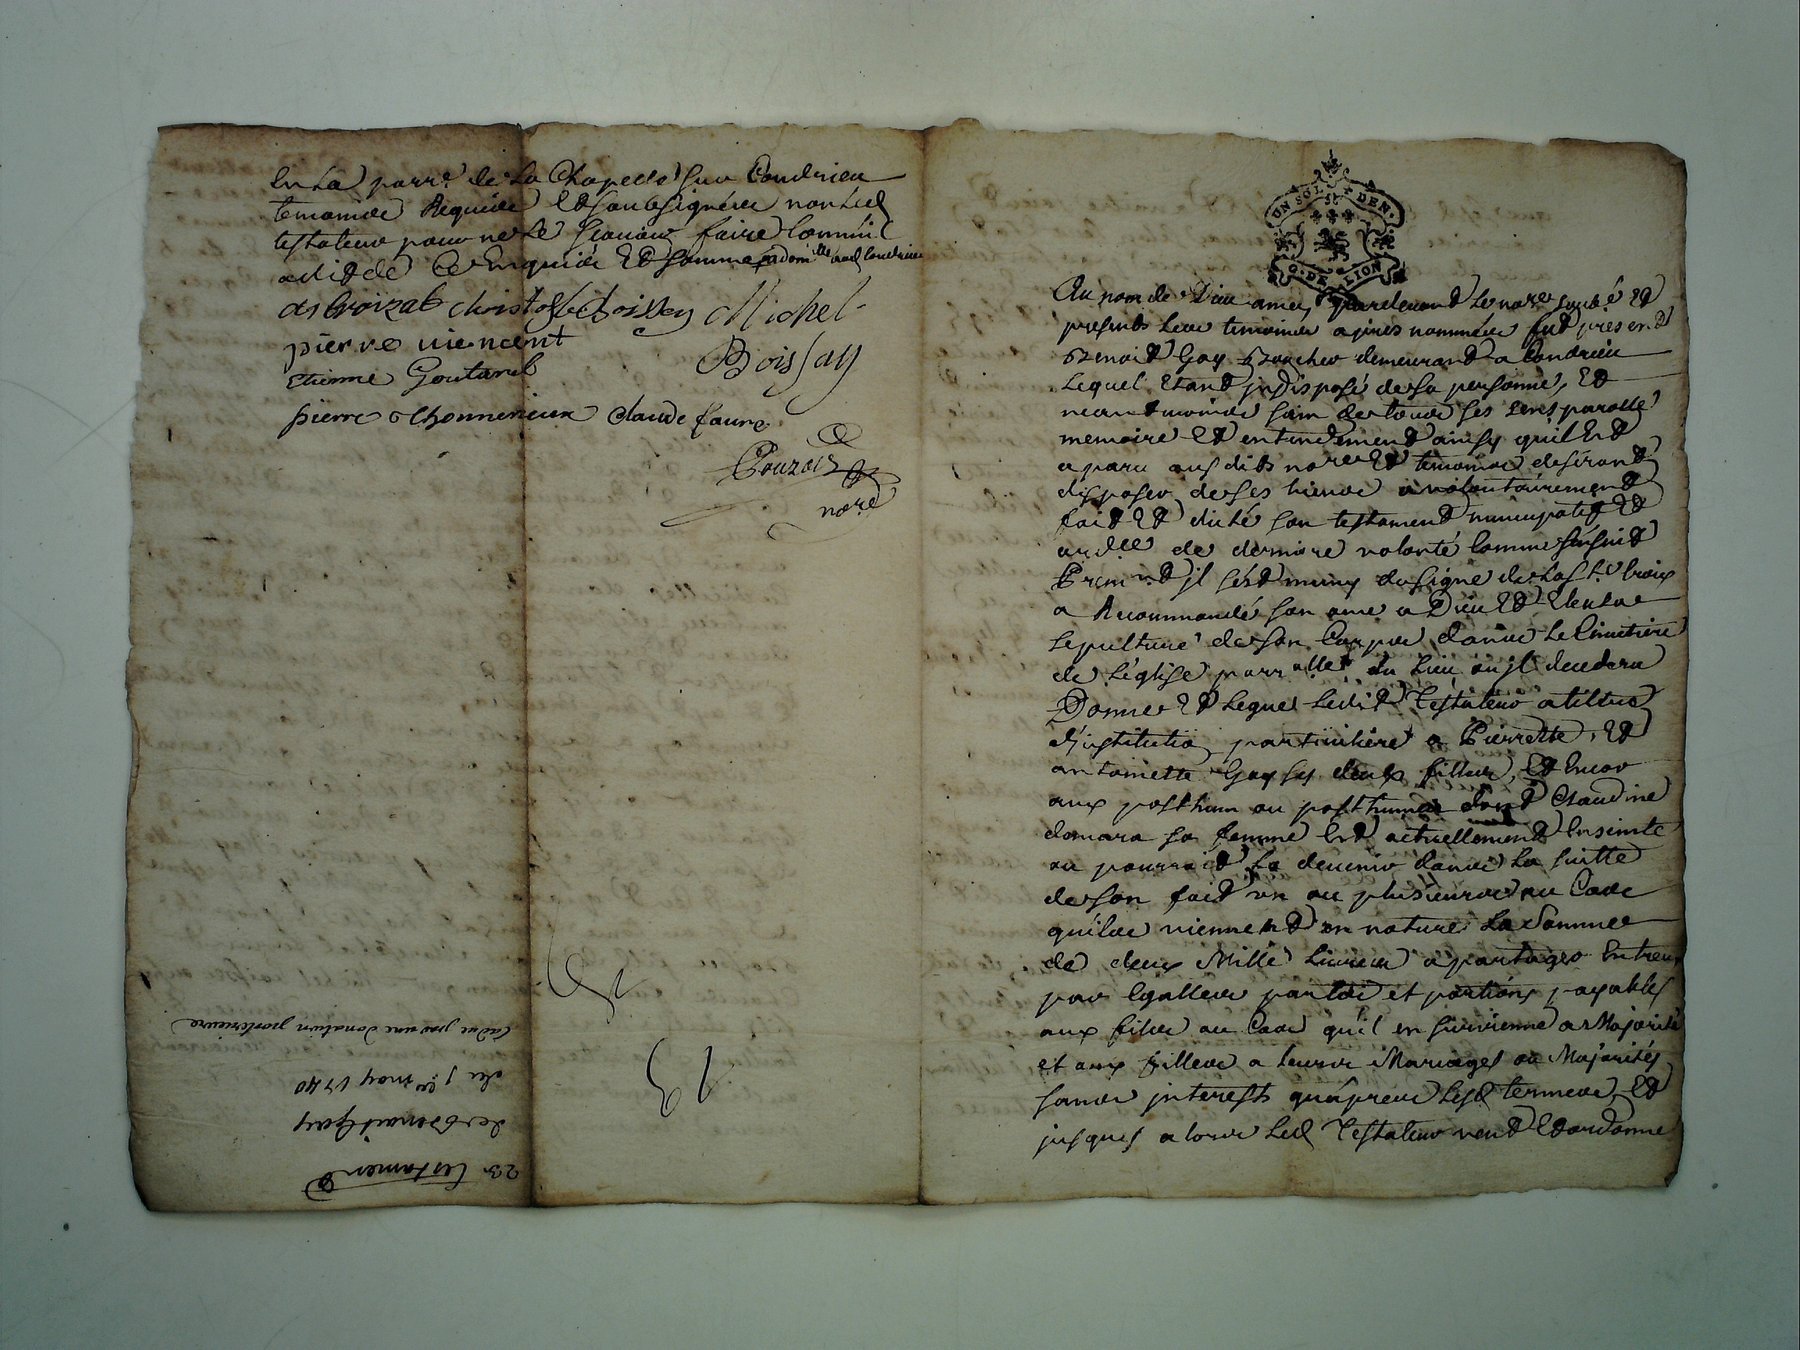 en la parr.e de la Chapelle sur Condrieu
temoins Requis Et soubsignés non led
testateur pour ne le scavoir faire comme il
a dit de ce enquis Et sommé
descroizat christofle boissey Michel
pierre viencent Boissay
Etienne Goutarel
pierre Chonnerieux Claude faure
Pouzols
no.re
UN SOL 4 DEN.
G. DE LION
Au nom de Dieu amen pardevant le no.re soub.é Et
presents les temoins apres nommés fut present
Benoit Gay Boucher demeurant a Condrieu
Lequel Etant indisposé de sa personne, Et
neantmoins sain de tous ses sens parolle
memoire Et entendement ainsy quil Est
aparu ausdits no.re Et temoins desirant
disposer de ses biens a volontairement
fait Et dicté son testament nuncupatif Et
ord.ce de derniere volonté Comme sensuit
Prem.nt il sest muny du signe de la S.te Croix
a Recommandé son ame a Dieu Et Eleu sa
sepulture de son Corps dans le Cimetiere
de l'eglise parr.alle du lieu ou jl decedera
Donne Et legue ledit Testateur a tiltre
d'institution particuliere a Pierrette, Et
antoinette Gay ses deux filles, Et Encor
aux posthum ou posthumes dont Claudine
domara sa femme Est actuellement Enceinte
ou pourroit le devenir dans la suitte
de son fait un ou plusieurs au Cas
quils viennent en nature La Somme
de deux Mille Livres a partager Entreux
par Egalles parts et portions payables
aux fils au Cas qu'il en survienne a Majorité
et aux filles a leurs Mariages ou Majorités
sans interests quapres lesd termes, Et
jusques a lors led Testateur veut Et ordonne
23 Testament
de Benoit Gay
du 1.er may 1740
Cadue par une donation posterieure